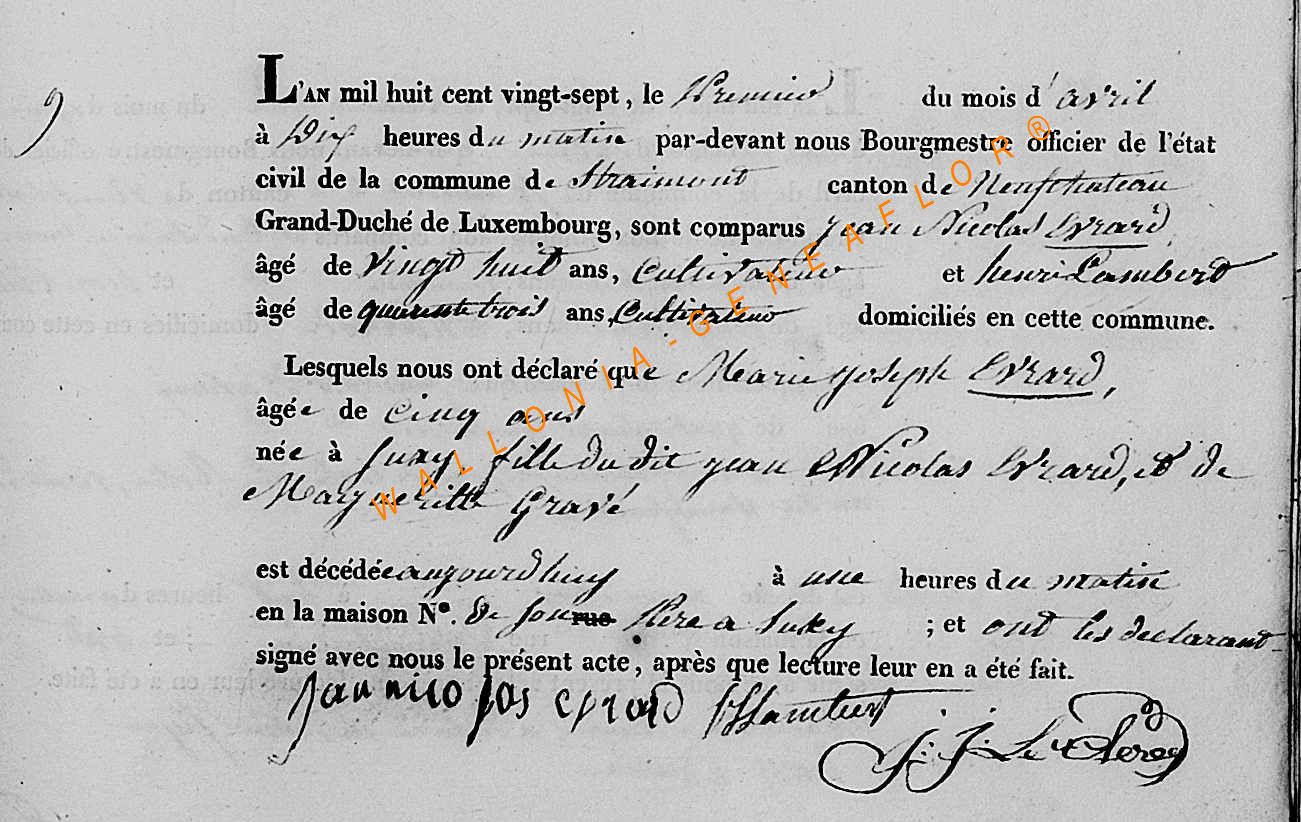 9
L'AN mil huit cent vingt-sept, le Premier du mois d'avril
à Dix heures du matin par-devant nous Bourgmestre officier de l'état
civil de la commune de Straimont canton de Neufchateau
Grand-Duché de Luxembourg, sont comparus jean Nicolas Evrard
âgé de vingt huit ans, Cultivateur et henri Lambert
âgé de quarente trois ans, Cultivateur domiciliés en cette commune.
Lesquels nous ont déclaré que Marie joseph Evrard,
âgée de cinq ans
née à Suxy, fille du dit jean Nicolas Evrard, et de
Margueritte Gravé
est décédée aujourdhuy à une heures du matin
en la maison N°. de son rue Père a Suxy ; et ont les declarant
signé avec nous le présent acte, après que lecture leur en a été fait.
jean nicolas evrard H Lambert
J. J. Le Clercq
WALLONIA-GENEAFLOR®